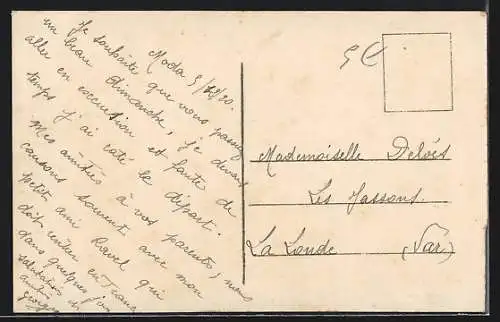 Moda 5/12/20.
Je souhaite que vous passiez
un beau dimanche, je devais
aller en excursion et faute de
temps j'ai raté le départ.
Mes amitiés à vos parents, nous
causons souvent avec mon
petit ami Ravel qui
doit rentrer en France
dans quelques jours
salutations et
amitiés
Georges
5 €
Mademoiselle
Les Jassons
La Londe (Var)